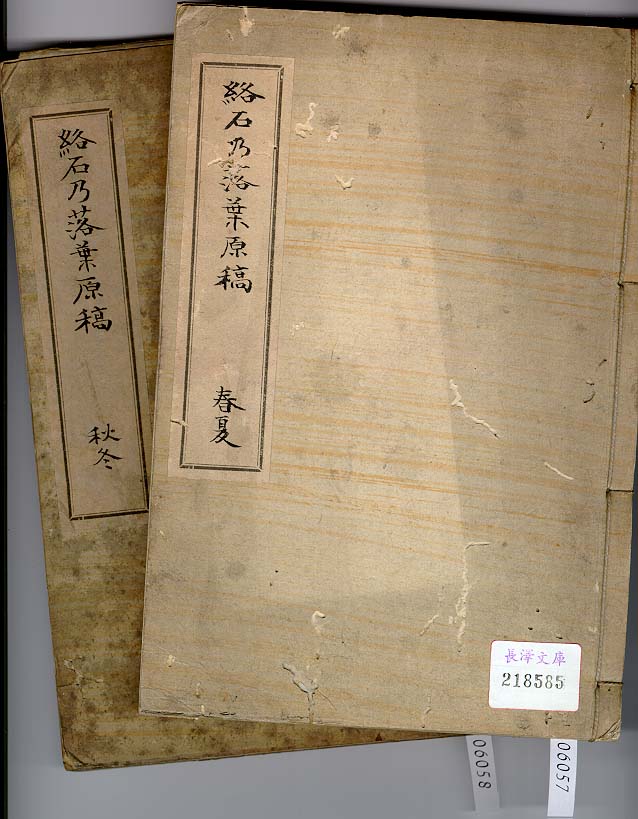 絡石乃落葉原稿 春夏
絡石乃落葉原稿 秋冬
長澤文庫
218585
06058
06057